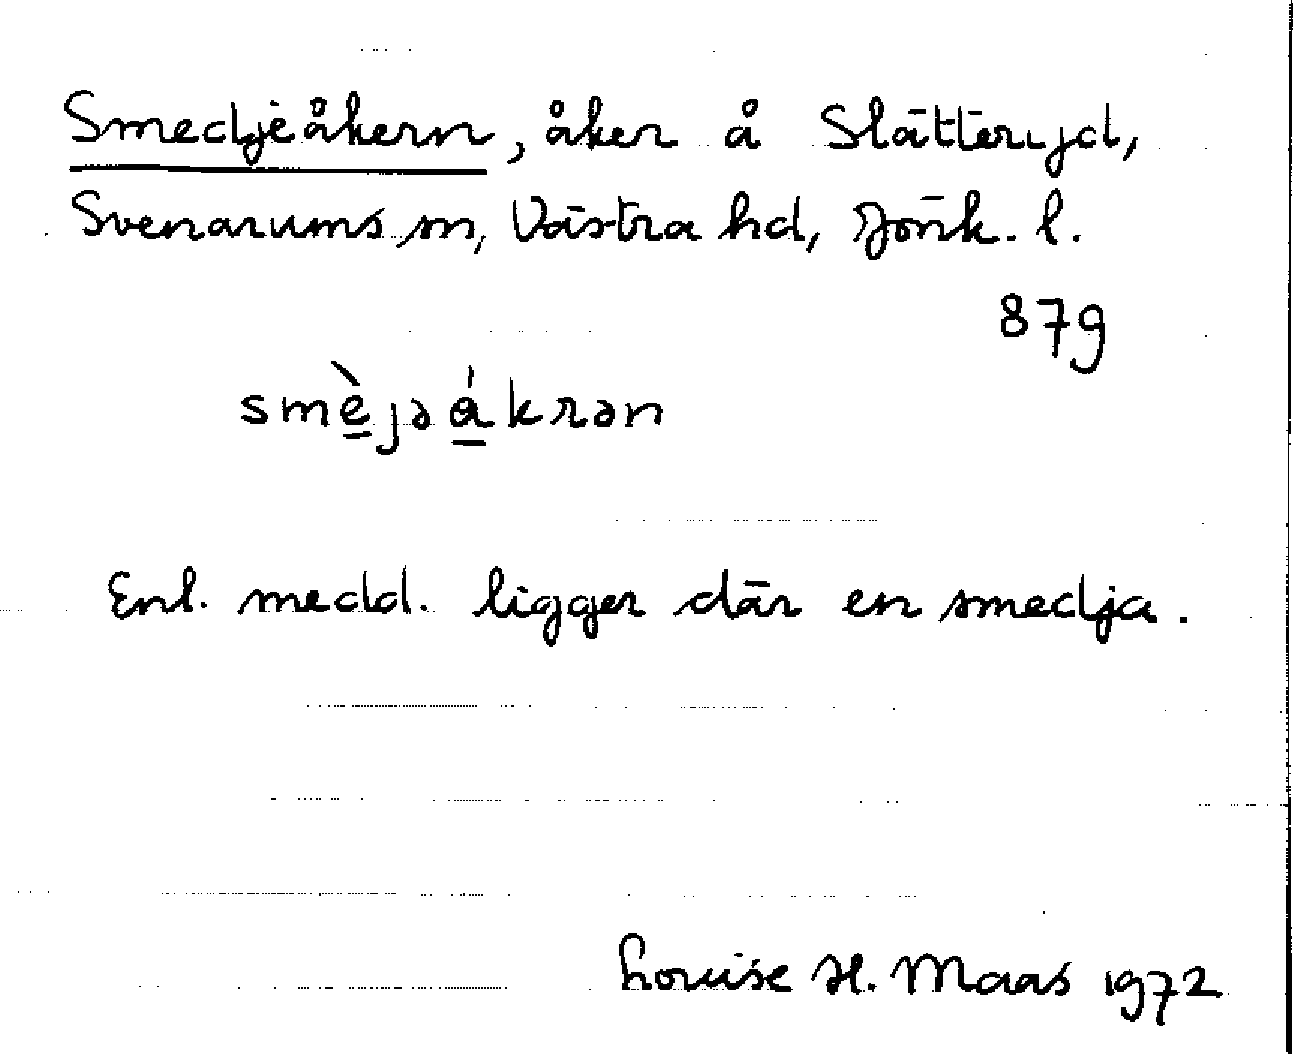 Smedjeåkern, åker å Slätteryd,
Svenarums sn, Västra hd, Jönk. l.
879
smè̲jəá̲krən
Enl. medd. ligger där en smedja.
Louise H. Maas 1972